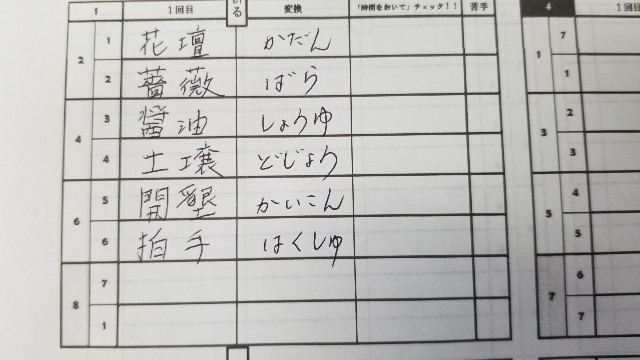 1 1回目 折る 変換 「時間をおいて」チェック!! 苦手 4 1回目
2 1 花壇 かだん 1 7
2 薔薇 ばら 1
4 3 醤油 しょうゆ 3 2
4 土壌 どじょう 3
6 5 開墾 かいこん 5 4
6 拍手 はくしゅ 5
8 7 7 6
1 7